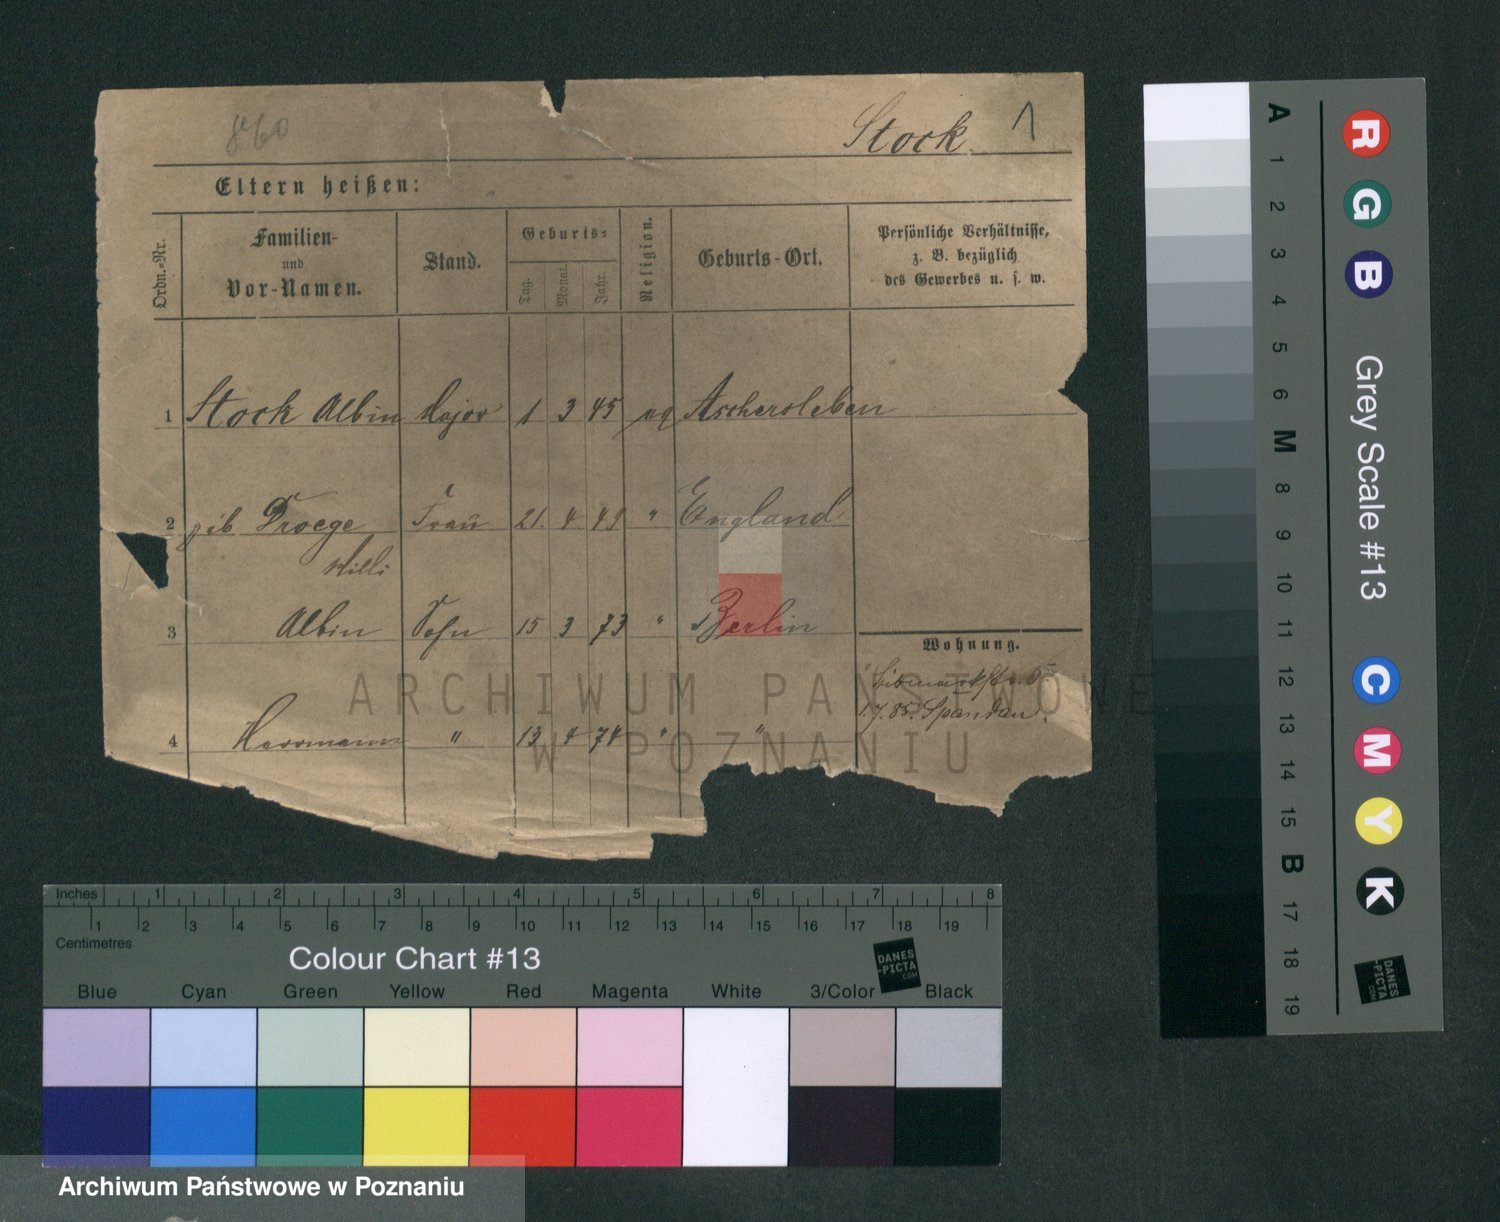 860
Stock 1
Eltern heißen:
Ordn.-Nr. Familien- und Vor-Namen. Stand. Geburts- Tag. Monat. Jahr. Religion. Geburts-Ort. Persönliche Verhältnisse, z. B. bezüglich des Gewerbes u. s. w.
1 Stock Albin Major 1 3 45 Aschersleben
2 geb Droege Frau 21 4 49 " England
Willi
3 Albin Sohn 15 3 73 " Berlin
Wohnung.
Bismarckstr 5
1.7.85. Spandau.
4 Herrmann " 13 4 74 " "
ARCHIWUM PAŃSTWOWE
W POZNANIU
A 1 2 3 4 5 6 M 8 9 10 11 12 13 14 15 B 17 18 19
R G B
Grey Scale #13
C M Y K
DANES
-PICTA
.COM
Inches 1 2 3 4 5 6 7 8
1 2 3 4 5 6 7 8 9 10 11 12 13 14 15 16 17 18 19
Centimetres
Colour Chart #13
DANES
-PICTA
.COM
Blue Cyan Green Yellow Red Magenta White 3/Color Black
Archiwum Państwowe w Poznaniu